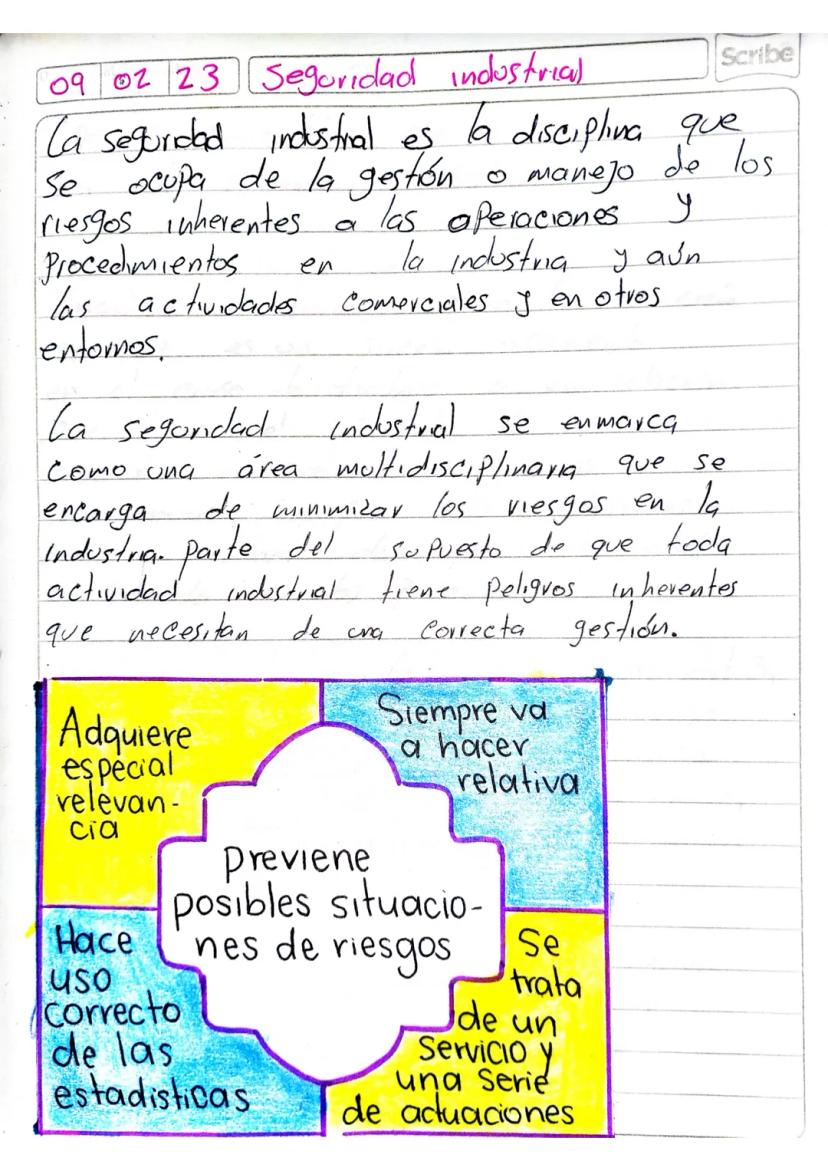 Scribe
09 02 23 Seguridad industrial
La seguridad industrial es la disciplina que
se ocupa de la gestión o manejo de los
riesgos inherentes a las operaciones y
procedimientos en la industria y aún
las actividades comerciales y en otros
entornos.
La seguridad industrial se enmarca
como una área multidisciplinaria que se
encarga de minimizar los riesgos en la
industria. parte del supuesto de que toda
actividad industrial tiene peligros inherentes
que necesitan de una correcta gestión.
Adquiere
especial
relevan-
cia
Siempre va
a hacer
relativa
previene
posibles situacio-
nes de riesgos
Hace
uso
correcto
de las
estadisticas
Se
trata
de un
servicio y
una serie
de actuaciones